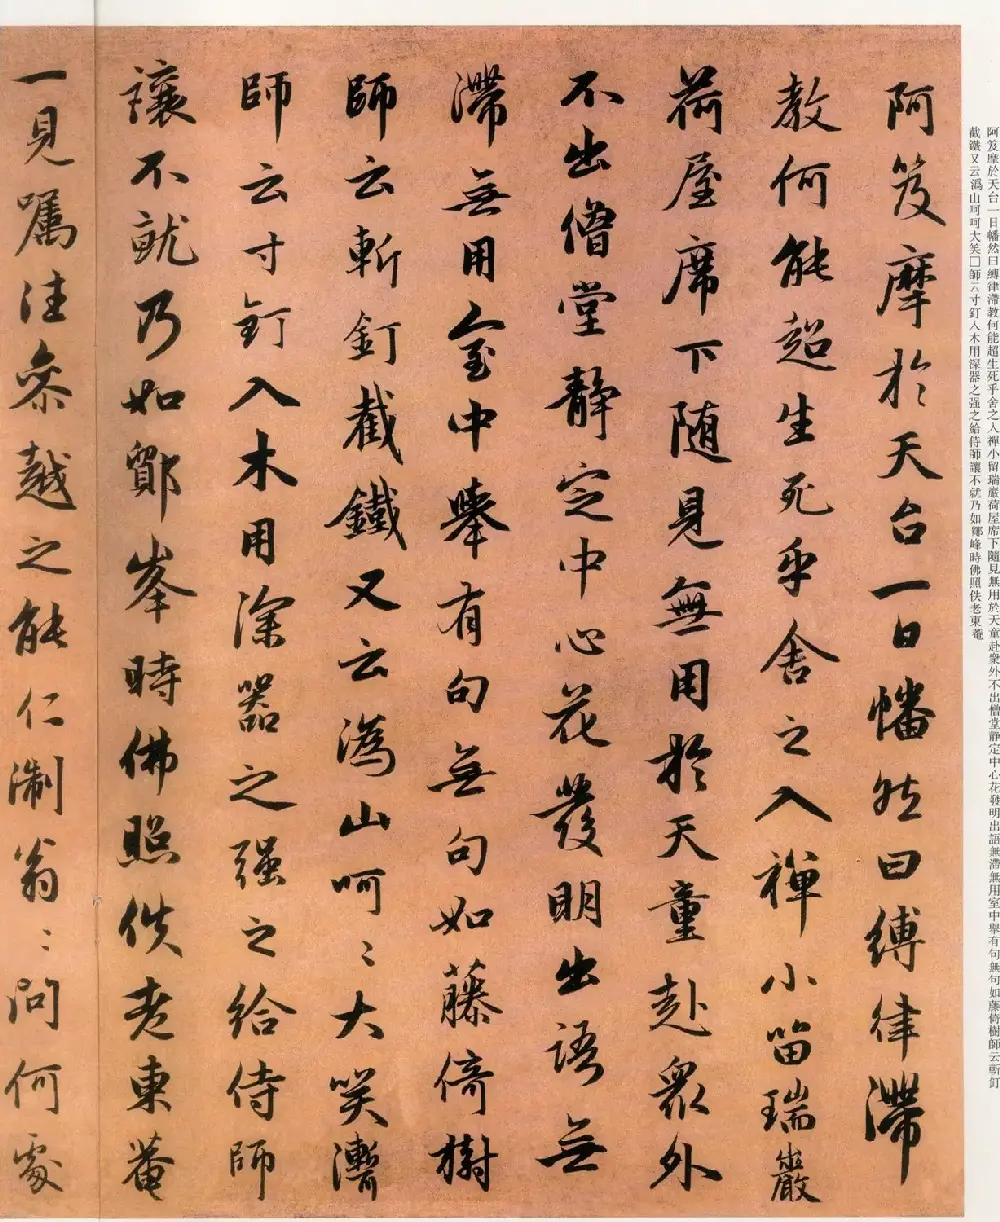 阿笈摩於天台一日幡然曰縛律滯
教何能超生死乎舍之入禪小留瑞巖
荷屋席下随見無用於天童赴衆外
不出僧堂静定中心花發明出語無
滯無用室中舉有句無句如藤倚樹
師云斬釘截鐵又云溈山呵〻大笑漕
師云寸釘入木用深器之强之給侍師
讓不就乃如鄮峯時佛照佚老東菴
一見囑法參越之能仁淛翁〻問何處
阿笈摩於天台一日幡然曰縛律滯教何能超生死乎舍之入禪小留瑞巖荷屋席下隨見無用於天童赴衆外不出僧堂靜定中心花發明出語無滯無用室中舉有句無句如藤倚樹師云斬釘
截鐵又云溈山呵呵大笑□師云寸釘入木用深器之强之給侍師讓不就乃如鄮峰時佛照佚老東菴